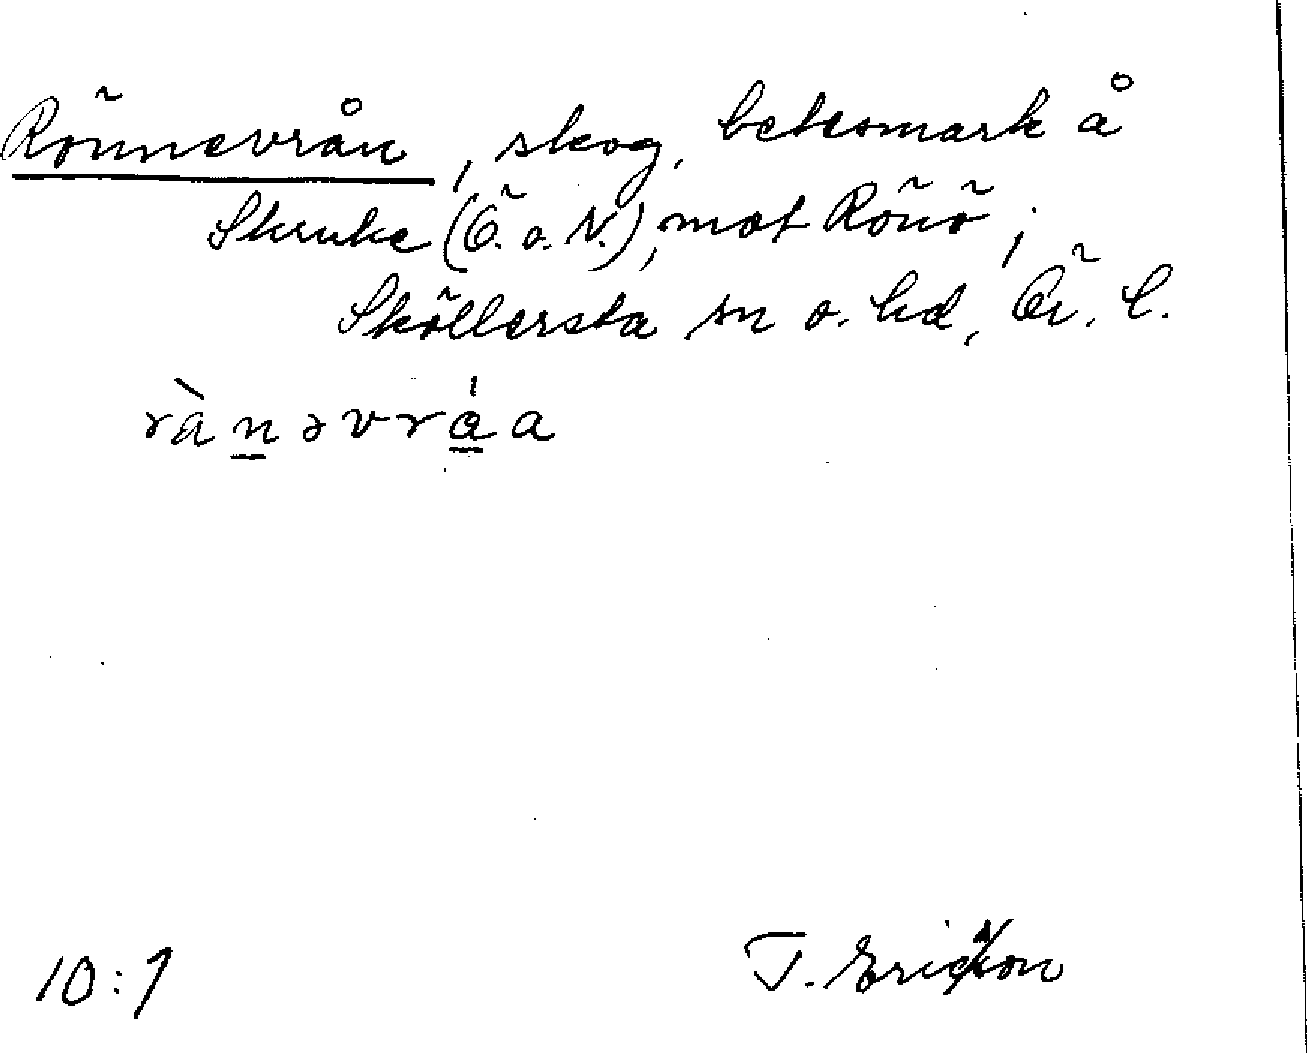 Rönnevrån, skog, betesmark å
Skruke (Ö. o. N.), mot Rönö;
Sköllersta sn o. hd, Ör. l.
rànəvráa
10:1
T. Ericsson